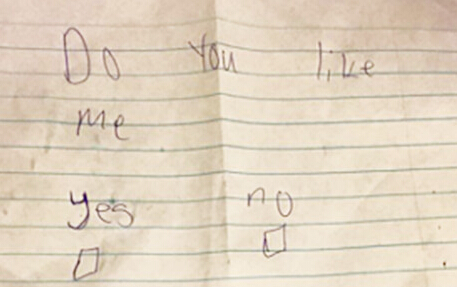 Do You like
me
yes no